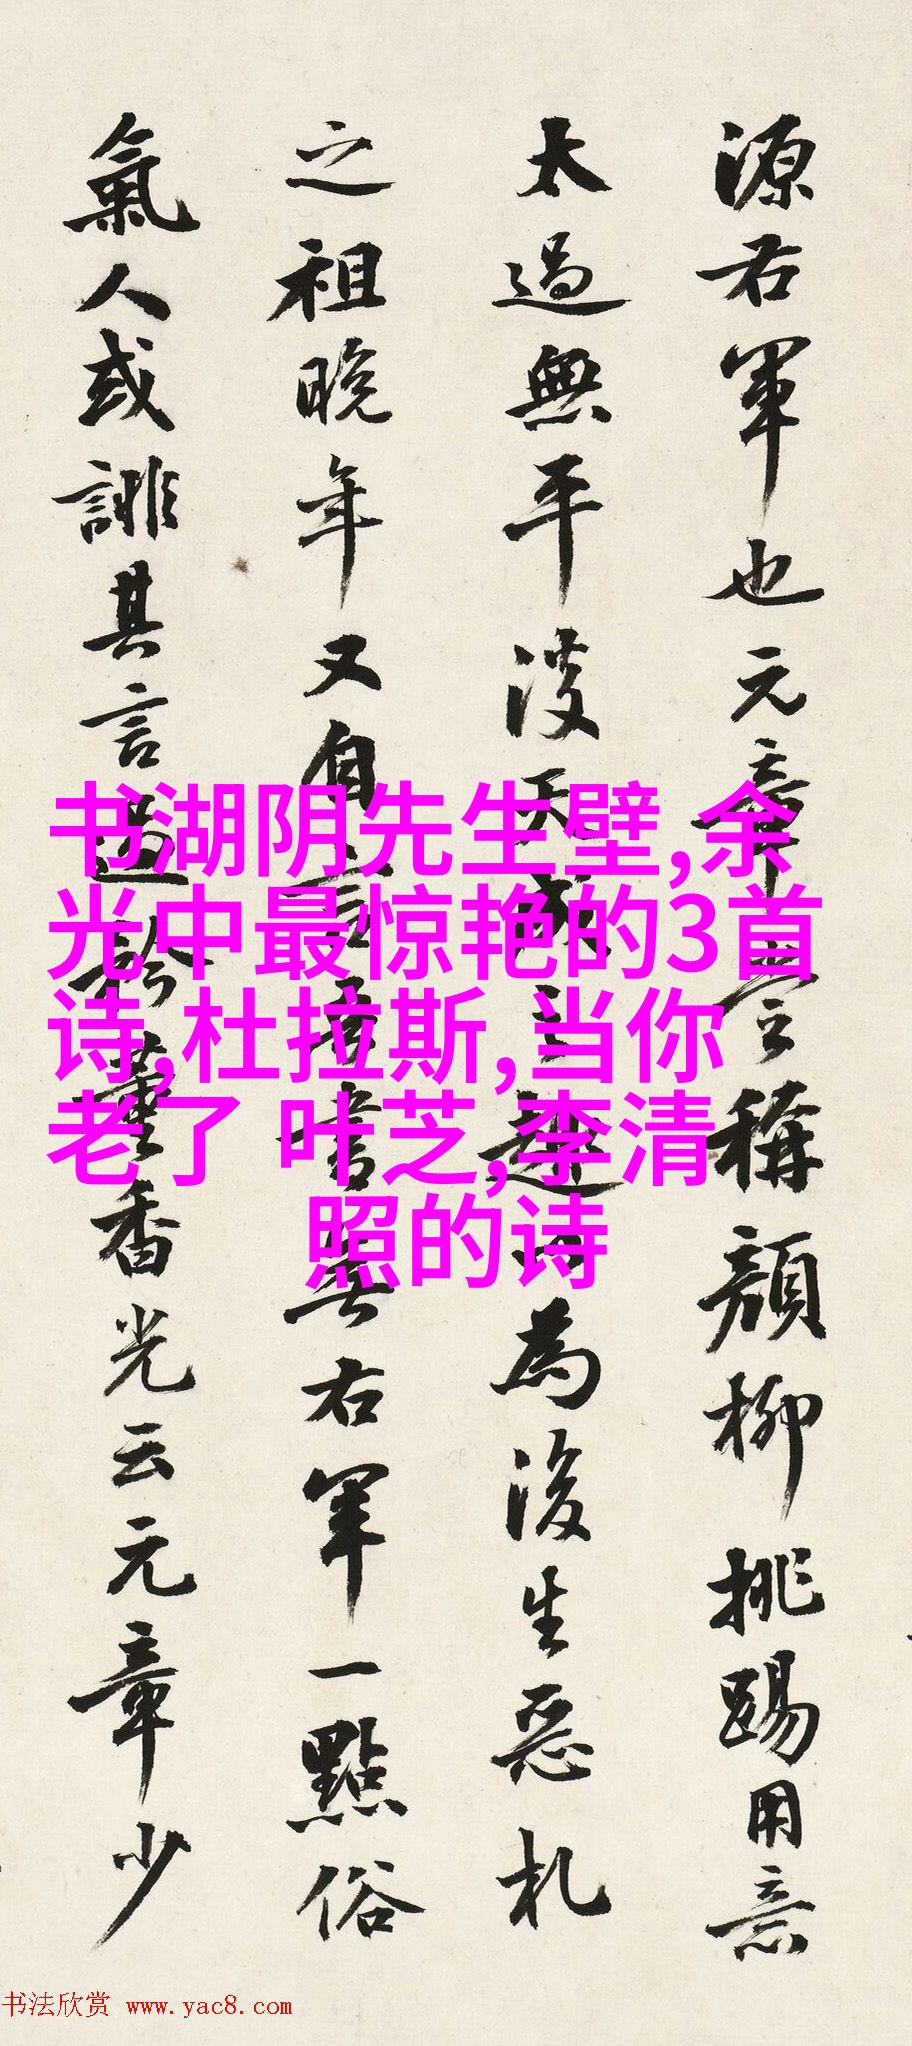 源右軍也元章嘗稱顏柳挑踢用意
太過無平淡天成之趣以為後生惡札
之祖晚年又自言吾書無右軍一點俗
氣人或誹其言過矜董香光云元章少
书湖阴先生壁,余
光中最惊艳的3首
诗,杜拉斯,当你
老了 叶芝,李清
照的诗
书法欣赏 www.yac8.com